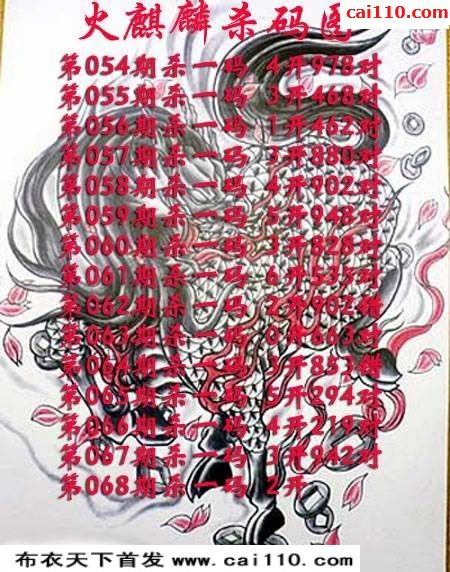 cai110.com
火麒麟杀码图
第054期杀一码 4开978对
第055期杀一码 3开468对
第056期杀一码 1开462对
第057期杀一码 3开880对
第058期杀一码 4开902对
第059期杀一码 5开948对
第060期杀一码 3开828对
第061期杀一码 6开535对
第062期杀一码 2开902错
第063期杀一码 0开663对
第064期杀一码 3开853错
第065期杀一码 5开294对
第066期杀一码 4开219对
第067期杀一码 3开942对
第068期杀一码 2开
布衣天下首发 www.cai110.com